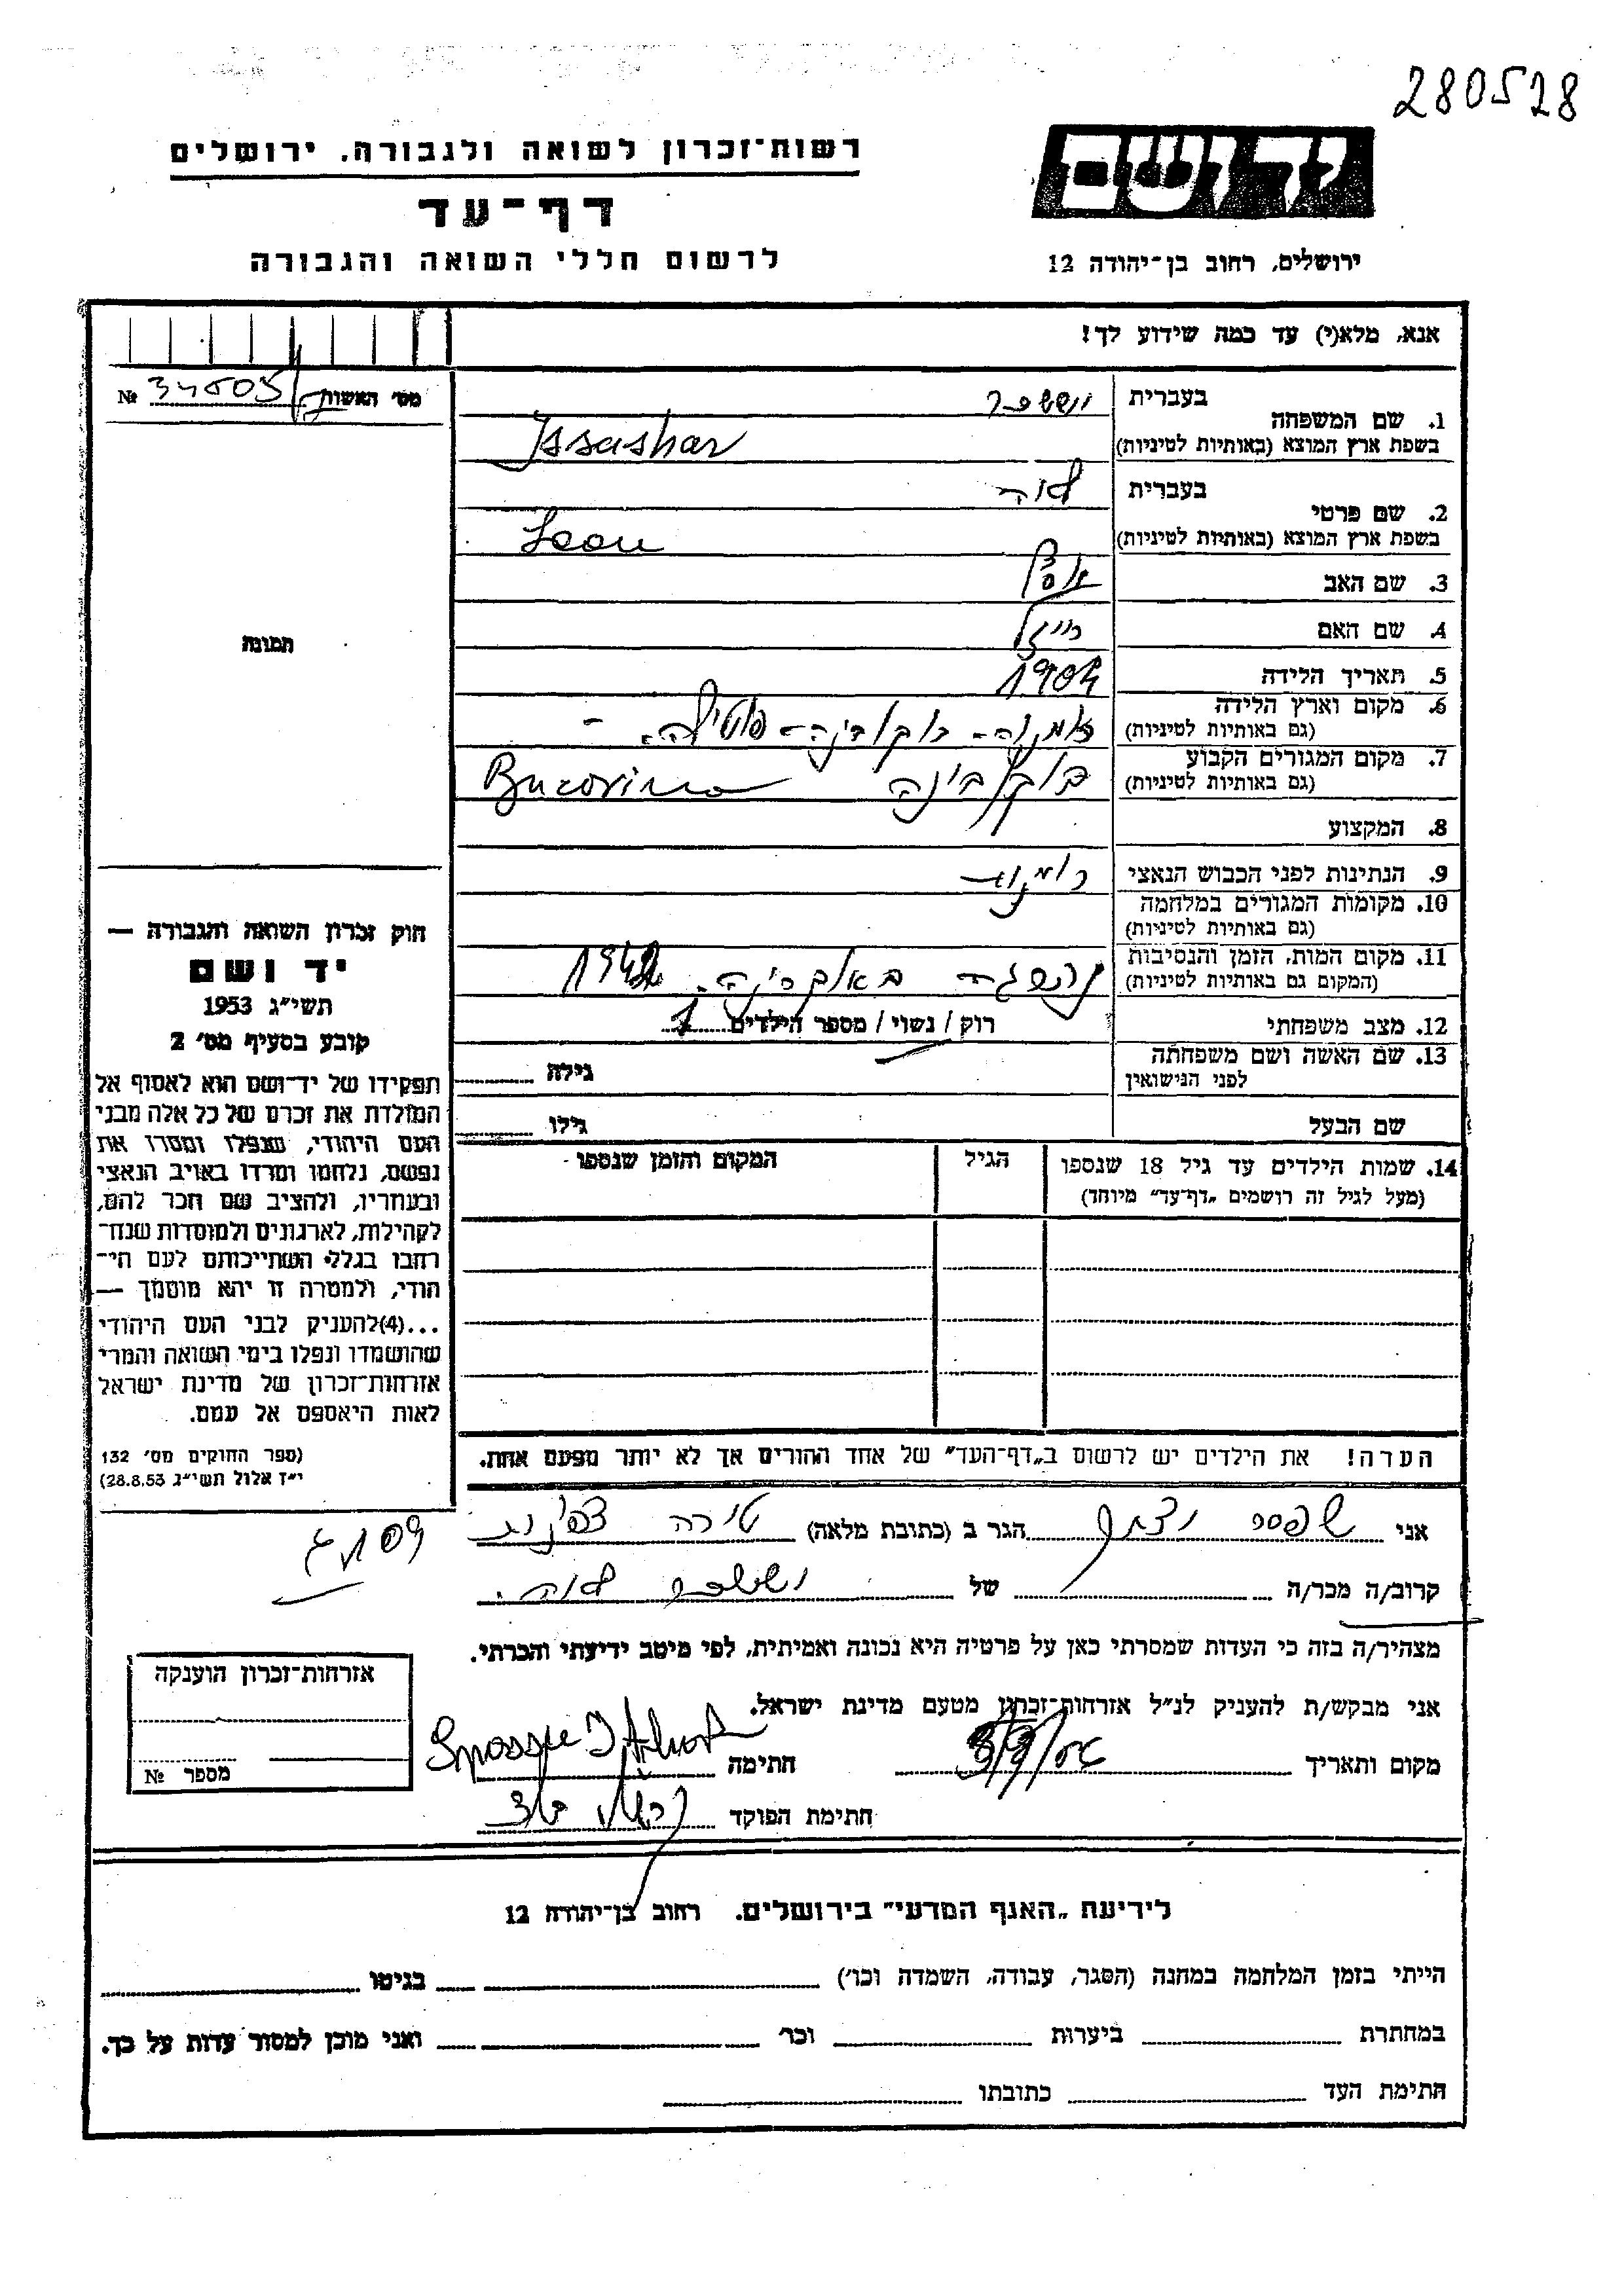 280528
רשות־זכרון לשואה ולגבורה, ירושלים
יד ושם
דף־עד
לרשום חללי השואה והגבורה
ירושלים, רחוב בן־יהודה 12
אנא, מלא(י) עד כמה שידוע לך!
מס' האשות №
1. שם המשפחה
בעברית
בשפת ארץ המוצא (באותיות לטיניות) Issashar
2. שם פרטי
בעברית
בשפת ארץ המוצא (באותיות לטיניות) Leon
3. שם האב
4. שם האם רייזל
5. תאריך הלידה 1904
6. מקום וארץ הלידה
(גם באותיות לטיניות)
7. מקום המגורים הקבוע
(גם באותיות לטיניות) בוקובינה Bucovina
8. המקצוע
9. הנתינות לפני הכבוש הנאצי
10. מקומות המגורים במלחמה
(גם באותיות לטיניות)
11. מקום המות, הזמן והנסיבות
(המקום גם באותיות לטיניות)
12. מצב משפחתי רוק / נשוי / מספר הילדים 1
13. שם האשה ושם משפחתה
לפני הנישואין גילה
שם הבעל גילו
14. שמות הילדים עד גיל 18 שנספו
(מעל לגיל זה רושמים „דף־עד" מיוחד)
הגיל
המקום והזמן שנספו
תמונה
חוק זכרון השואה והגבורה —
יד ושם
תשי״ג 1953
קובע בסעיף מס' 2
תפקידו של יד־ושם הוא לאסוף אל
המולדת את זכרם של כל אלה מבני
העם היהודי, שנפלו ומסרו את
נפשם, נלחמו ומרדו באויב הנאצי
ובעוזריו, ולהציב שם וזכר להם,
לקהילות, לארגונים ולמוסדות שנח־
רבו בגלל השתייכותם לעם הי־
הודי, ולמטרה זו יהא מוסמך —
...(4)להעניק לבני העם היהודי
שהושמדו ונפלו בימי השואה והמרי
אזרחות־זכרון של מדינת ישראל
לאות היאספם אל עמם.
(ספר החוקים מס' 132
י״ז אלול תשי״ג 28.8.53)
הערה! את הילדים יש לרשום ב„דף־העד" של אחד ההורים אך לא יותר מפעם אחת.
אני הגר ב (כתובת מלאה)
קרוב/ה מכר/ה של
מצהיר/ה בזה כי העדות שמסרתי כאן על פרטיה היא נכונה ואמיתית, לפי מיטב ידיעתי והכרתי.
אני מבקש/ת להעניק לנ״ל אזרחות־זכרון מטעם מדינת ישראל.
מקום ותאריך חתימה
חתימת הפוקד
אזרחות־זכרון הוענקה
מספר №
לידיעת „האגף המדעי" בירושלים. רחוב בן־יהודה 12
הייתי בזמן המלחמה במחנה (הסגר, עבודה, השמדה וכו') בגיטו
במחתרת ביערות וכו' ואני מוכן למסור עדות על כך.
חתימת העד כתובתו